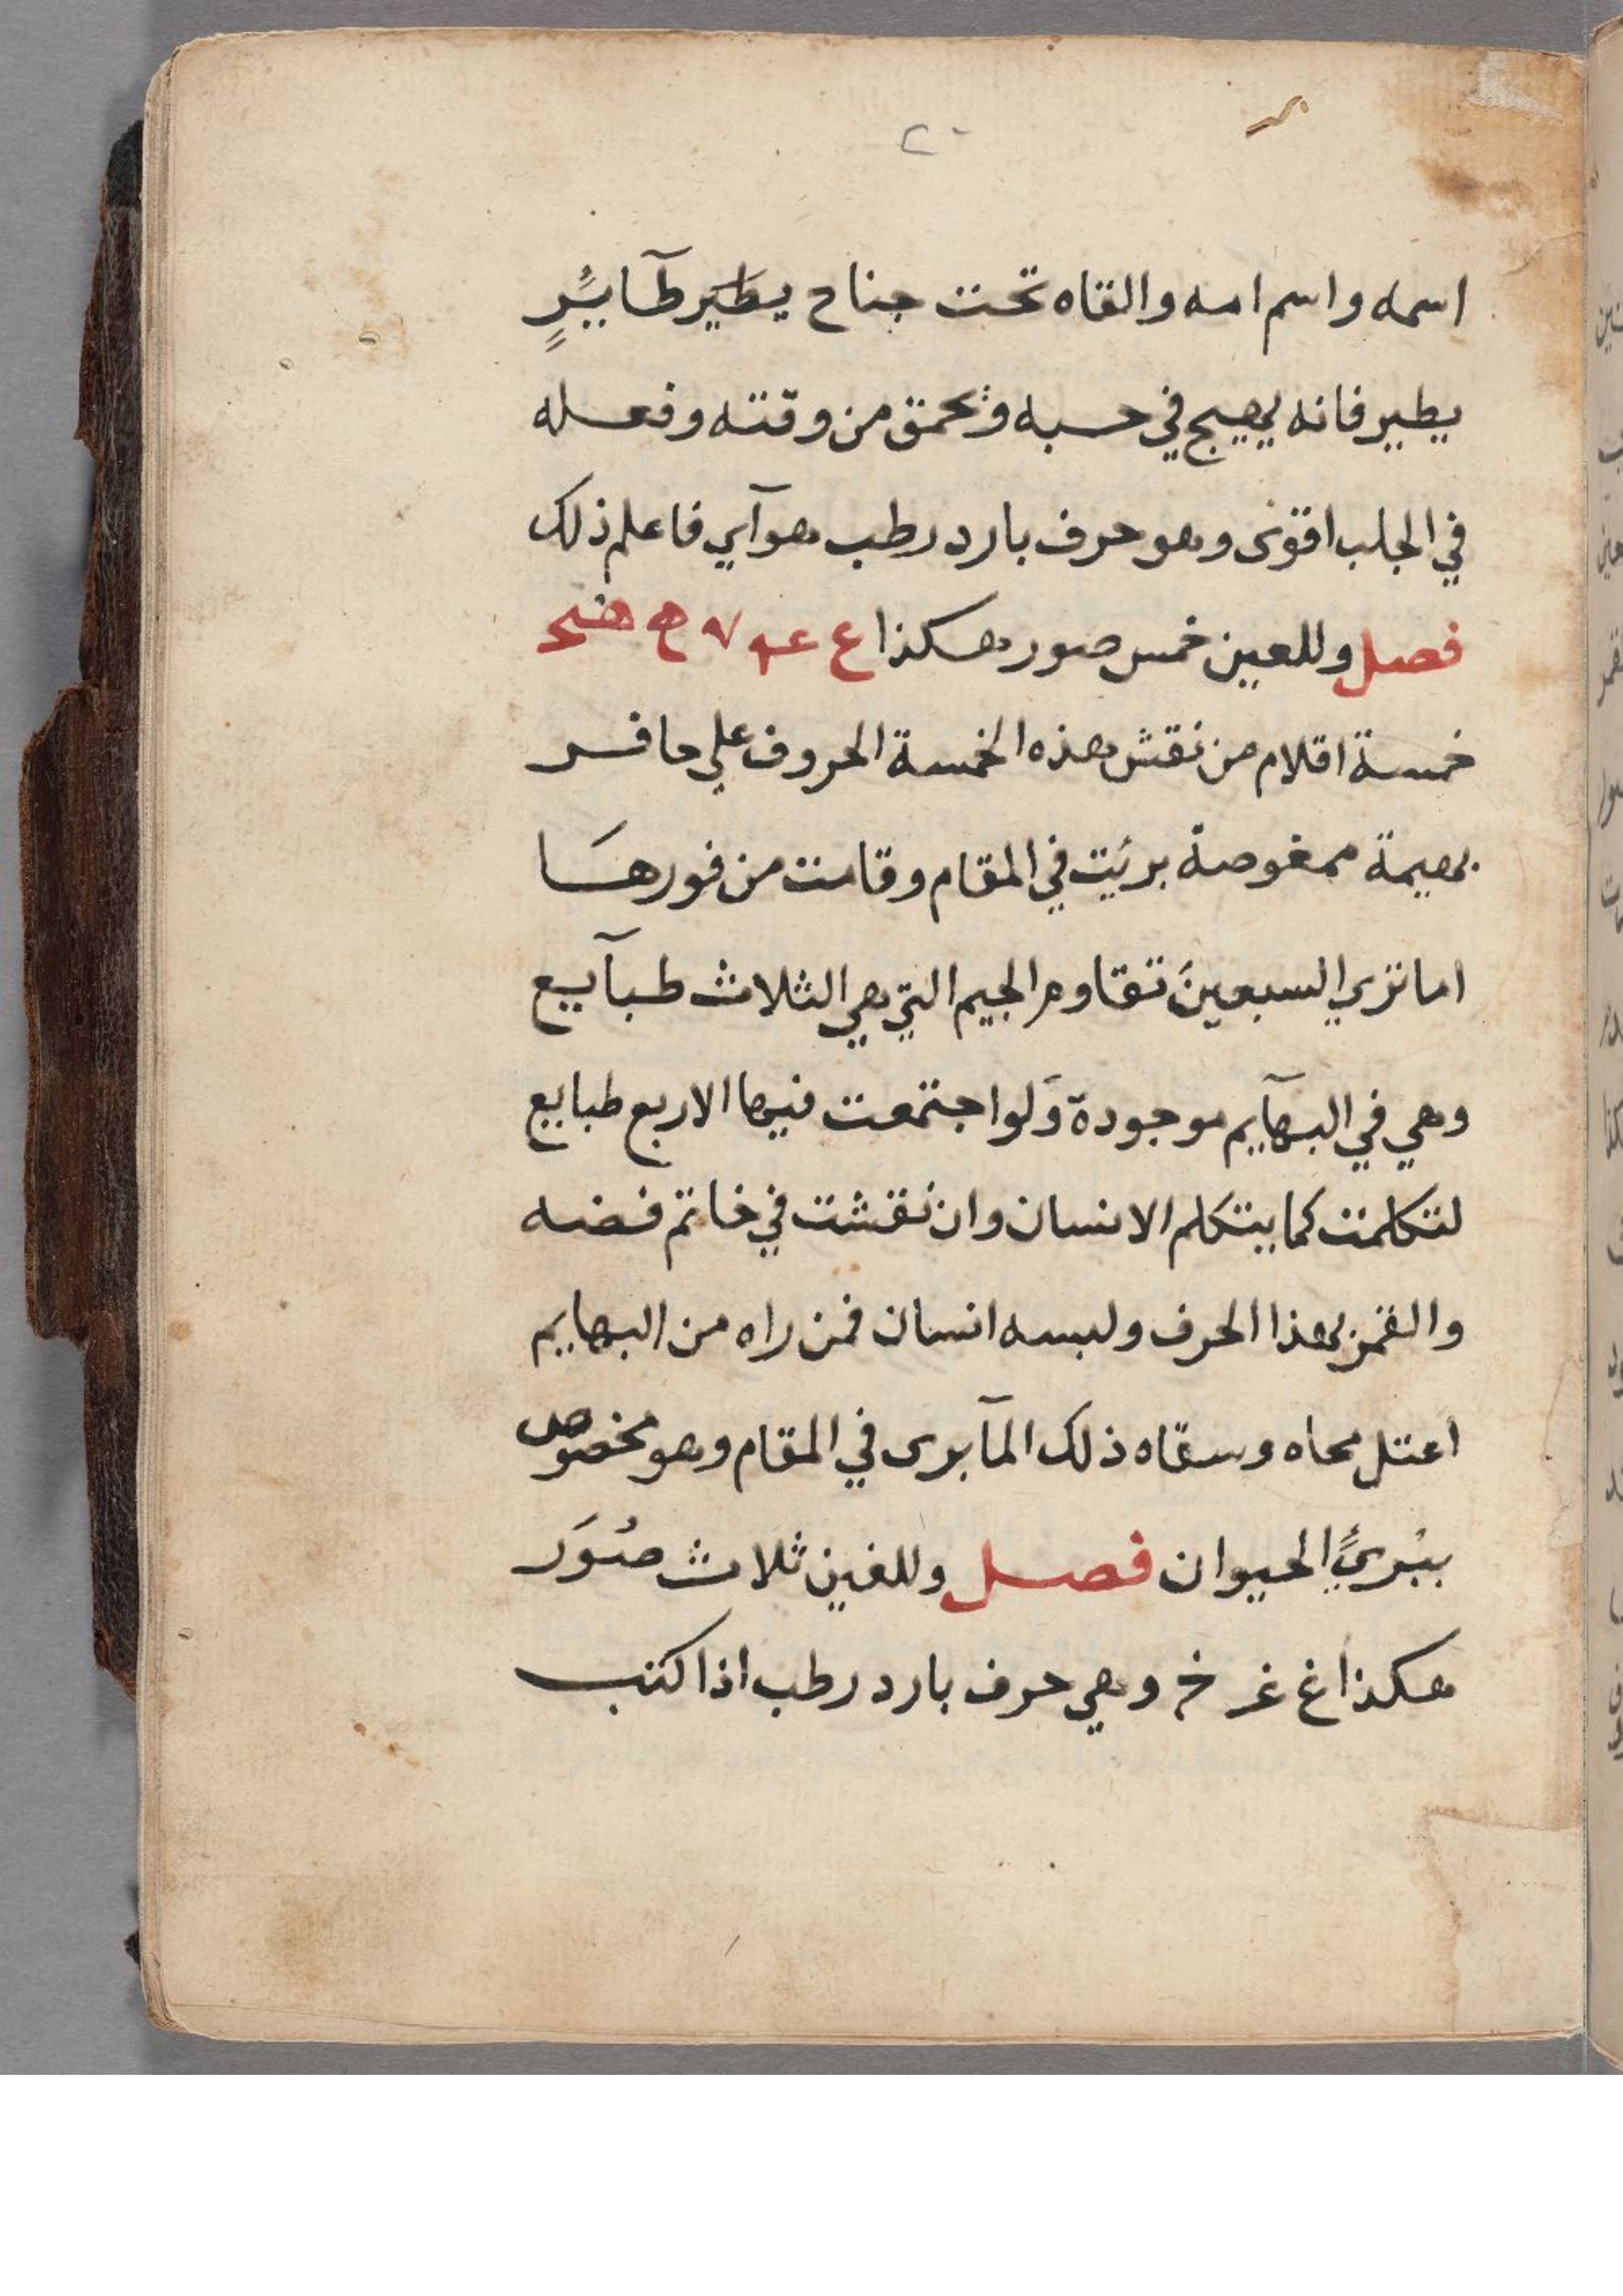 ٢٠
اسمه واسم امه والقاه تحت جناح يطَيَر طآيرٍ
يطير فانه يهيج في حسبه وتحمق من وقته وفعله
في الجلب اقوى وهو حرف بارد رطب هوآي فاعلم ذلك
فصل وللعين خمس صور هكذا ع
خمسة اقلام من نقش هذه الخمسة الحروف علي حافر
بهيمة ممغوصة بريَت في المقام وقامت من فورهَا
اما تري السبعينَ تقاوم الجيم التي هي الثلاث طبآيع
وهي في البهآيم موجودة وَلو اجتمعت فيها الاربع طبايع
لتكلمت كما يتكلم الانسان وان نقشت في خاتم فضه
والقمز بهذا الحرف ولبسه انسان فمن راه من البهايم
اعتل محاه وسقاه ذلك المآ برى في المقام وهو مخصوص
الحيوان فصل وللغين ثلاث صُوَر
هكذا غ غر خر وهي حرف بارد رطب اذا كتب